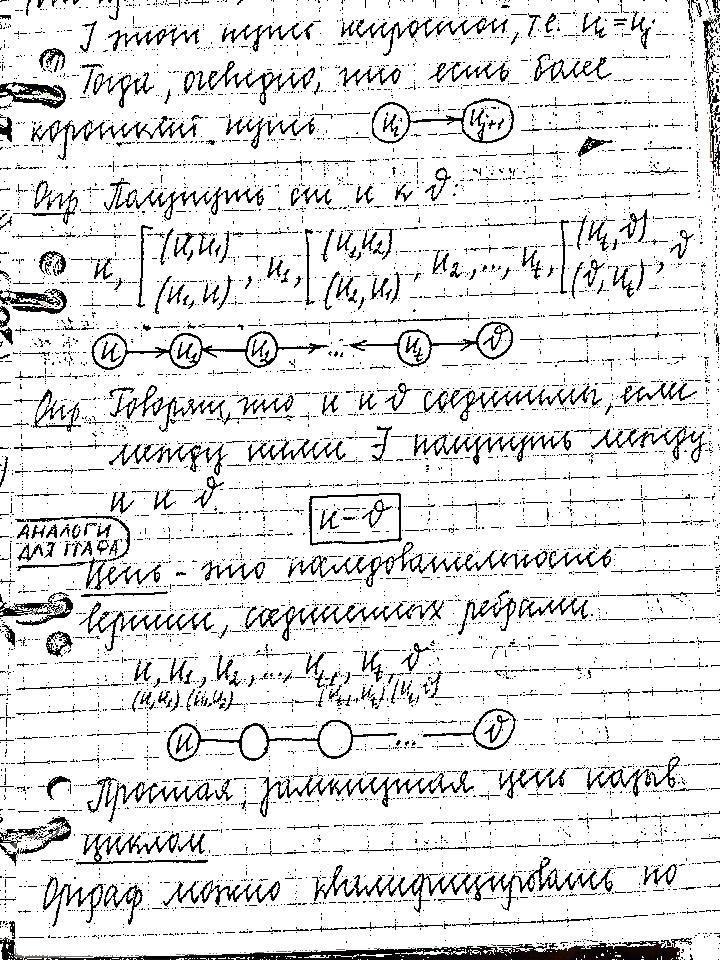 ∃ этот путь непростой, т.е. u_i = u_j
Тогда, очевидно, что есть более
короткий путь u_i → u_{j+1}
Опр Полупуть от u к v:
u, [(u,u_1) (u_1,u), u_1, [(u_1,u_2) (u_2,u_1), u_2, ..., u_t, [(u_t,v) (v,u_t), v
u u_2 u_1 ... u_t v
Опр Говорят, что u и v соединимы, если
между ними ∃ полупуть между
u и v
u – v
АНАЛОГИ
ДЛЯ ГРАФА
Цепь – это последовательность
вершин, соединенных ребрами.
u, u_1, u_2, ..., u_{t-1}, u_t, v
(u,u_1) (u_1,u_2) (u_{t-1},u_t) (u_t,v)
u ... v
Простая, замкнутая цепь назыв.
циклом
Орграф можно квалифицировать по